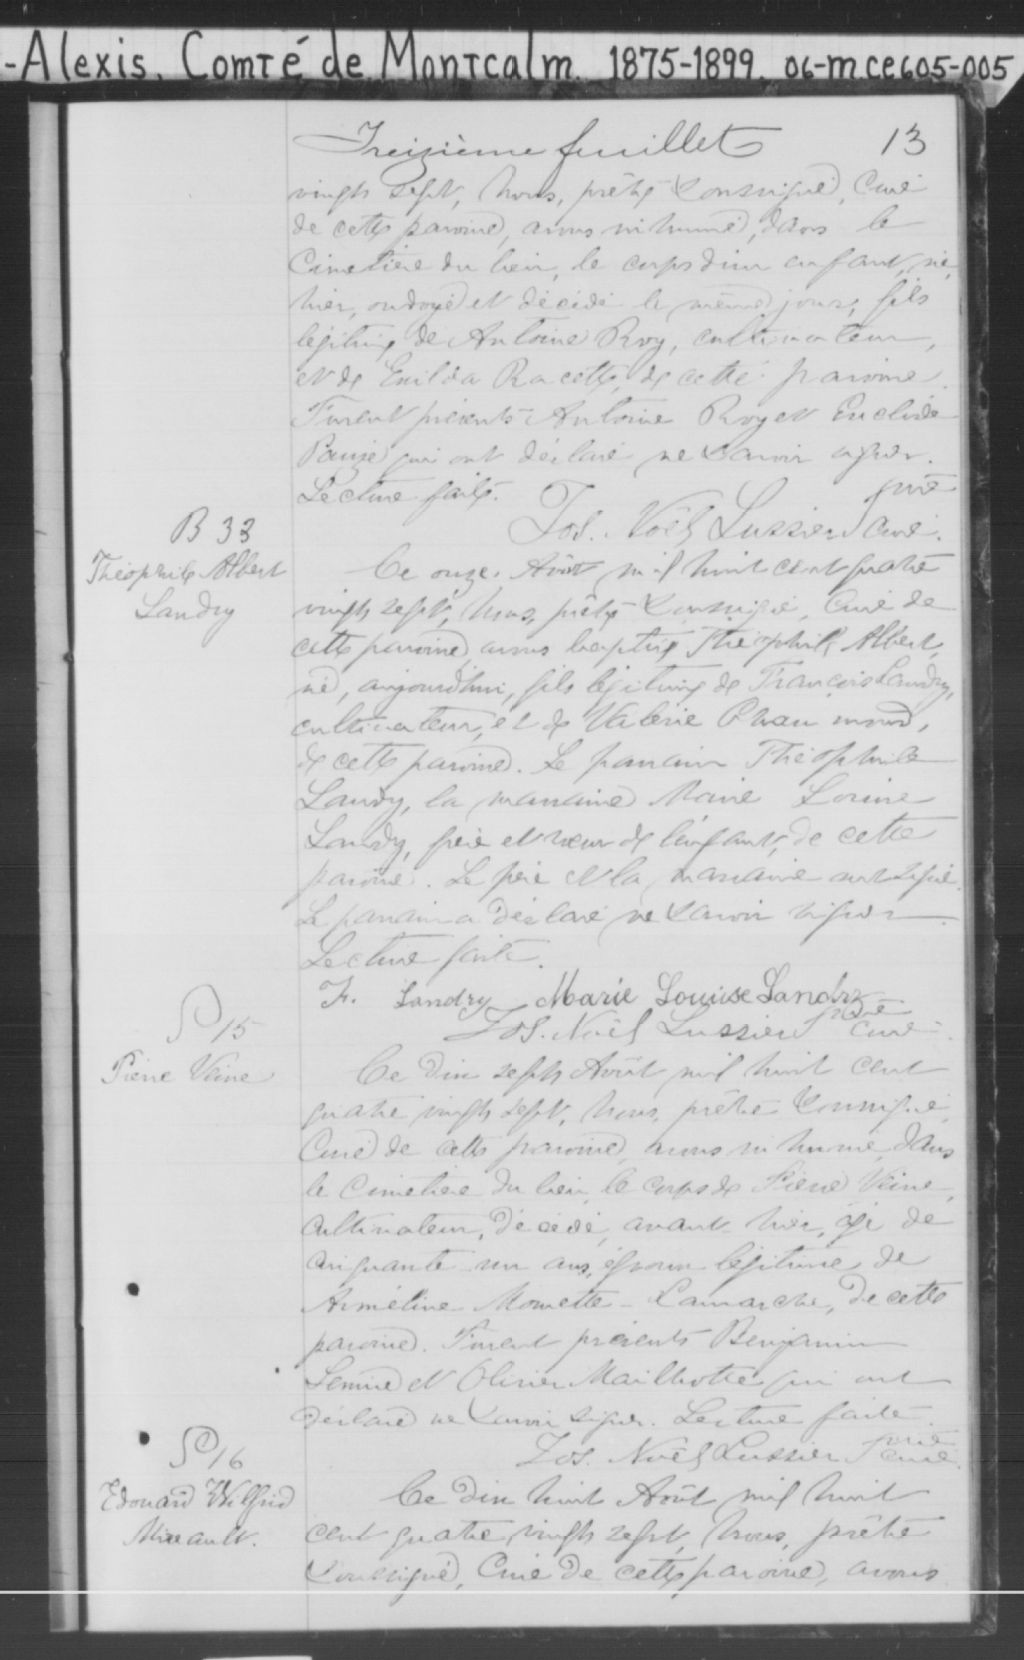 -Alexis. Comté de Montcalm. 1875-1899. 06-mce605-005
Treizième feuillet 13
vingt sept, Nous, prêtre soussigné, Curé
de cette paroisse, avons inhumé, dans le
Cimetière du lieu, le corps d'un enfant, né
hier, ondoyé et décédé le même jour, fils
légitime de Antoine Roy, cultivateur,
et de Exilda Racette, de cette paroisse.
Furent présents Antoine Roy et Euclide
qui ont déclaré ne savoir signer.
Lecture faite.
Jos. Noël Lussier ptre curé.
B 33
Théophile Albert
Landry
Ce onze Août mil huit cent quatre
vingt sept, Nous, prêtre soussigné, Curé de
cette paroisse avons baptisé Théophile Albert,
né, aujourd'hui, fils légitime de François Landry,
cultivateur, et de Valérie
de cette paroisse. Le parrain Théophile
Landry, la marraine Marie Louise
Landry, frère et soeur de l'enfant, de cette
paroisse. Le père et la marraine ont signé.
Le parrain a déclaré ne savoir signer.
Lecture faite.
F. Landry Marie Louise Landry
Jos. Noël Lussier ptre curé
S 15
Pierre Veine
Ce dix sept Août mil huit cent
quatre vingt sept, Nous, prêtre soussigné,
Curé de cette paroisse, avons inhumé, dans
le Cimetière du lieu, le corps de Pierre Veine,
cultivateur, décédé, avant-hier, âgé de
cinquante un ans, époux légitime de
Arméline Lamarche, de cette
paroisse. Furent présents Benjamin
et Olivier Mailhotte qui ont
déclaré ne savoir signer. Lecture faite.
Jos. Noël Lussier ptre curé.
S 16
Edouard Wilfrid
Mireault.
Ce dix huit Août mil huit
cent quatre vingt sept, Nous, prêtre
soussigné, Curé de cette paroisse, avons